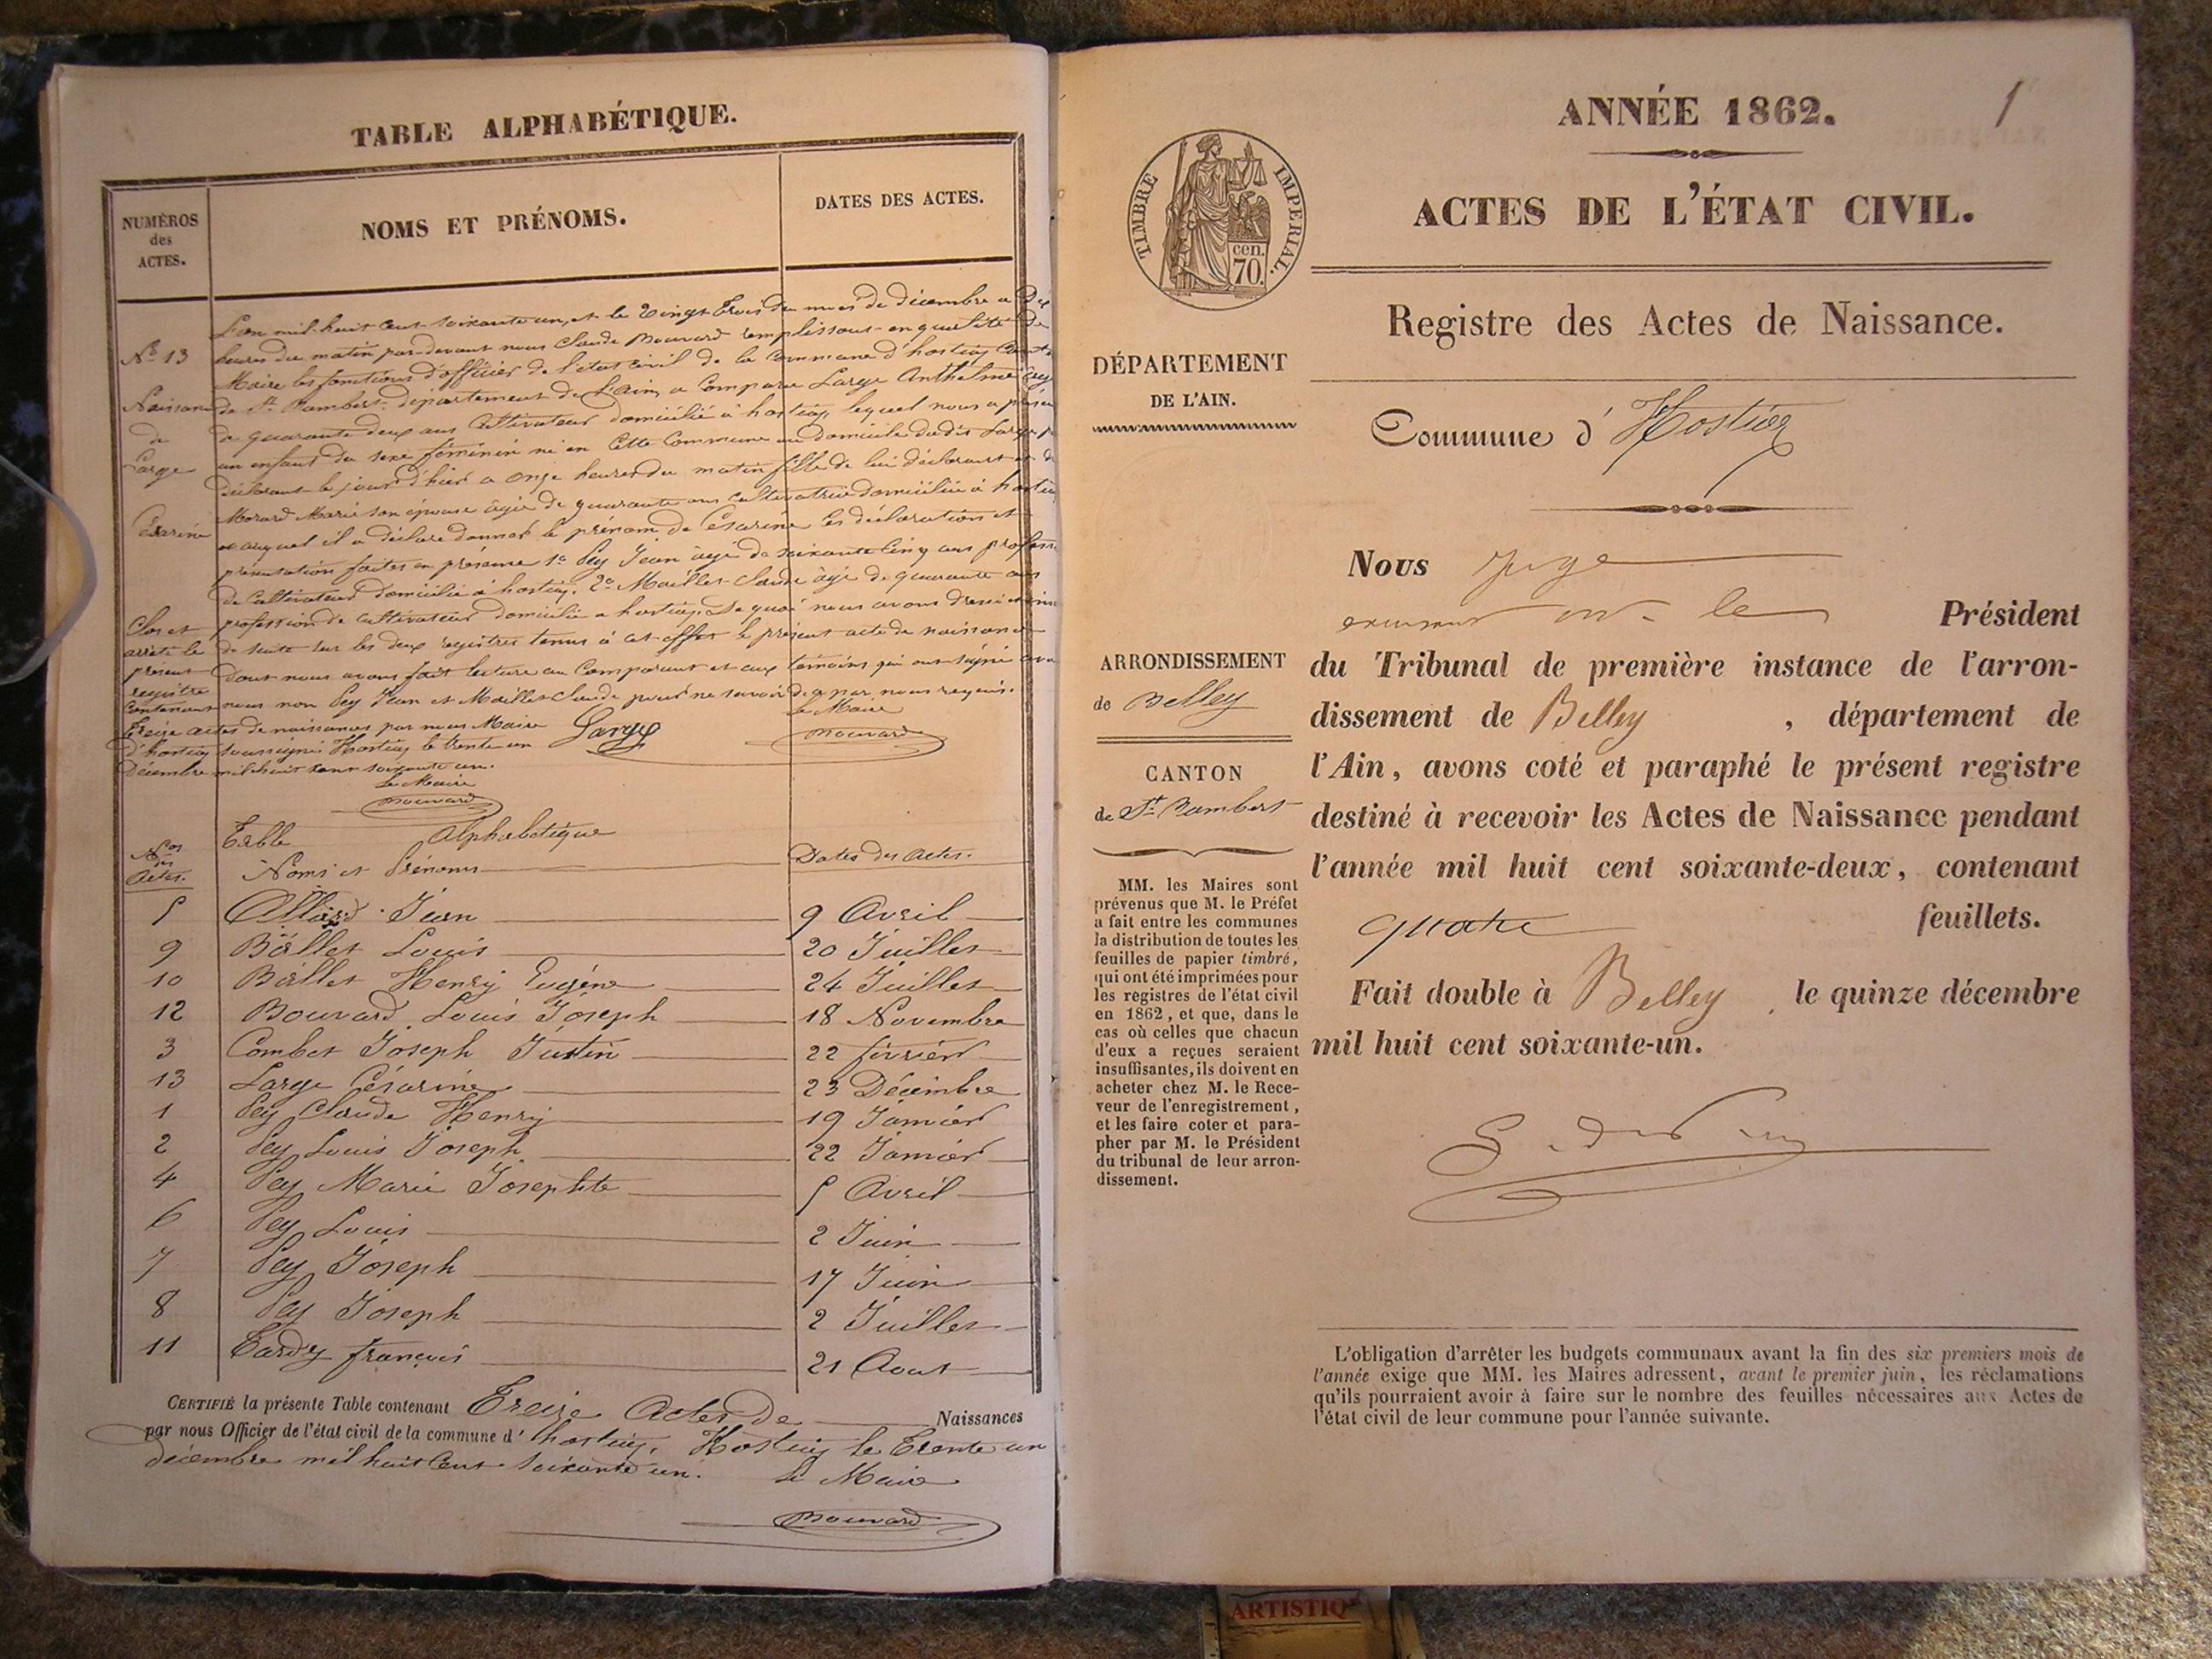 TABLE ALPHABÉTIQUE.
NUMÉROS
des
ACTES.
NOMS ET PRÉNOMS.
DATES DES ACTES.
L'an mil huit cent soixante un, et le vingt trois du mois de décembre a Dix
heures du matin par-devant nous Claude Bouvard remplissant en qualité de
Maire les fonctions d'officier de l'état civil de la Commune d'hostiaz Canton
de St Rambert département de l'Ain, a Comparu Large Anthelme agé
de quarante deux ans Cultivateur domicilié à hostiaz, lequel nous a présen
un enfant du sexe féminin né en Cette Commune au domicile dudit Large
déclarant le jour d'hier a onze heures du matin fille de lui déclarant et de
Morard Marie son épouse âgée de quarante ans cultivatrice domiciliée à hostiaz
et auquel il a déclaré donner le prénom de Césarine les déclaration et
présentation faites en présence 1° Pey Jean âgé de soixante Cinq ans profess
de Cultivateur domicilié à hostiaz, 2° Maillet Claude âgé de quarante ans
profession de cultivateur domicilié a hostiaz, De quoi nous avons dressé
de suite sur les deux registres tenus à cet effet le présent acte de naissance
dont nous avons fait lecture au Comparant et aux témoins qui ont signé avec
nous non Pey Jean et Maillet Claude pour ne savoir de ce par nous requis.
N° 13
Naissance
de
Large
Césarine
Clos et
arrêté le
présent
registre
Contenant
Treize actes de naissances par nous Maire
d'hostiaz soussigné. Hostiaz le trente un
Décembre mil huit cent soixante un.
Le Maire
Bouvard
Large
Le Maire
Bouvard
Table Alphabétique
Nos
des
Actes.
Noms et Prénoms
Dates des Actes.
5 Allard Jean 9 Avril
9 Ballet Louis 20 Juillet
10 Ballet Henry Eugène 24 Juillet
12 Bouvard Louis Joseph 18 Novembre
3 Combet Joseph Justin 22 février
13 Large Césarine 23 Décembre
1 Pey Claude Henry 19 Janvier
2 Pey Louis Joseph 22 Janvier
4 Pey Marie Josephte 5 Avril
6 Pey Louis 2 Juin
7 Pey Joseph 17 Juin
8 Pey Joseph 2 Juillet
11 Tardy françois 21 Aout
CERTIFIÉ la présente Table contenant Treize Actes de Naissances
par nous Officier de l'état civil de la commune d' hostiaz. Hostiaz le trente un
décembre mil huit Cent soixante un. Le Maire
Bouvard
1
ANNÉE 1862.
ACTES DE L'ÉTAT CIVIL.
TIMBRE IMPERIAL.
cen.
70.
Registre des Actes de Naissance.
DÉPARTEMENT
DE L'AIN.
Commune d' Hostiaz
Nous juge
le Président
du Tribunal de première instance de l'arron-
dissement de Belley, département de
l'Ain, avons coté et paraphé le présent registre
destiné à recevoir les Actes de Naissance pendant
l'année mil huit cent soixante-deux, contenant
quatre feuillets.
Fait double à Belley, le quinze décembre
mil huit cent soixante-un.
ARRONDISSEMENT
de Belley
CANTON
de St Rambert
MM. les Maires sont
prévenus que M. le Préfet
a fait entre les communes
la distribution de toutes les
feuilles de papier timbré,
qui ont été imprimées pour
les registres de l'état civil
en 1862, et que, dans le
cas où celles que chacun
d'eux a reçues seraient
insuffisantes, ils doivent en
acheter chez M. le Rece-
veur de l'enregistrement,
et les faire coter et para-
pher par M. le Président
du tribunal de leur arron-
dissement.
L'obligation d'arrêter les budgets communaux avant la fin des six premiers mois de
l'année exige que MM. les Maires adressent, avant le premier juin, les réclamations
qu'ils pourraient avoir à faire sur le nombre des feuilles nécessaires aux Actes de
l'état civil de leur commune pour l'année suivante.
ARTISTIQ